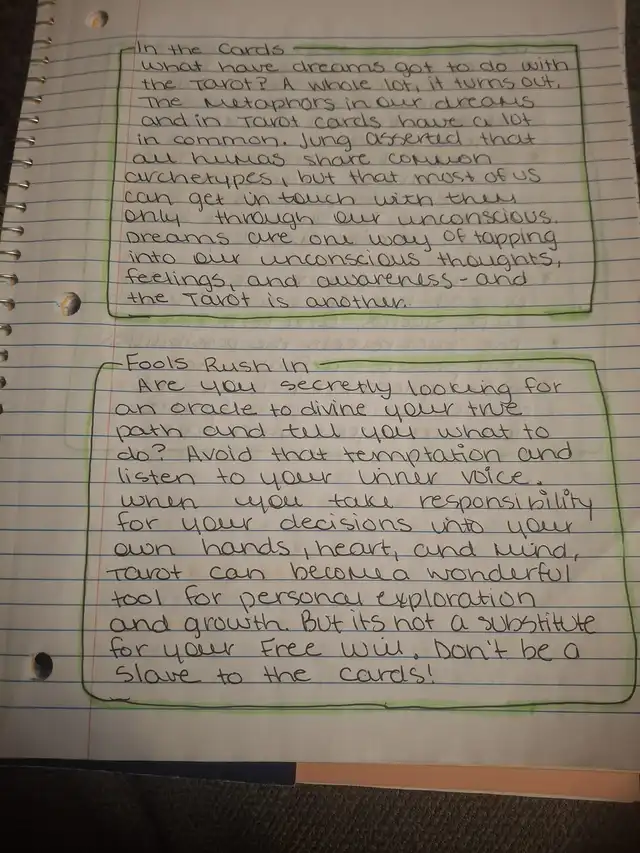 In the Cards
What have dreams got to do with
the Tarot? A whole lot, it turns out.
The Metaphors in our dreams
and in Tarot cards have a lot
in common. Jung asserted that
all humas share common
archetypes, but that most of us
can get in touch with them
only through our unconscious.
Dreams are one way of tapping
into our unconscious thoughts,
feelings, and awareness - and
the Tarot is another.
Fools Rush In
Are you secretly looking for
an oracle to divine your true
path and tell you what to
do? Avoid that temptation and
listen to your inner voice.
When you take responsibility
for your decisions into your
own hands, heart, and mind,
Tarot can become a wonderful
tool for personal exploration
and growth. But its not a substitute
for your Free Will. Don't be a
Slave to the cards!